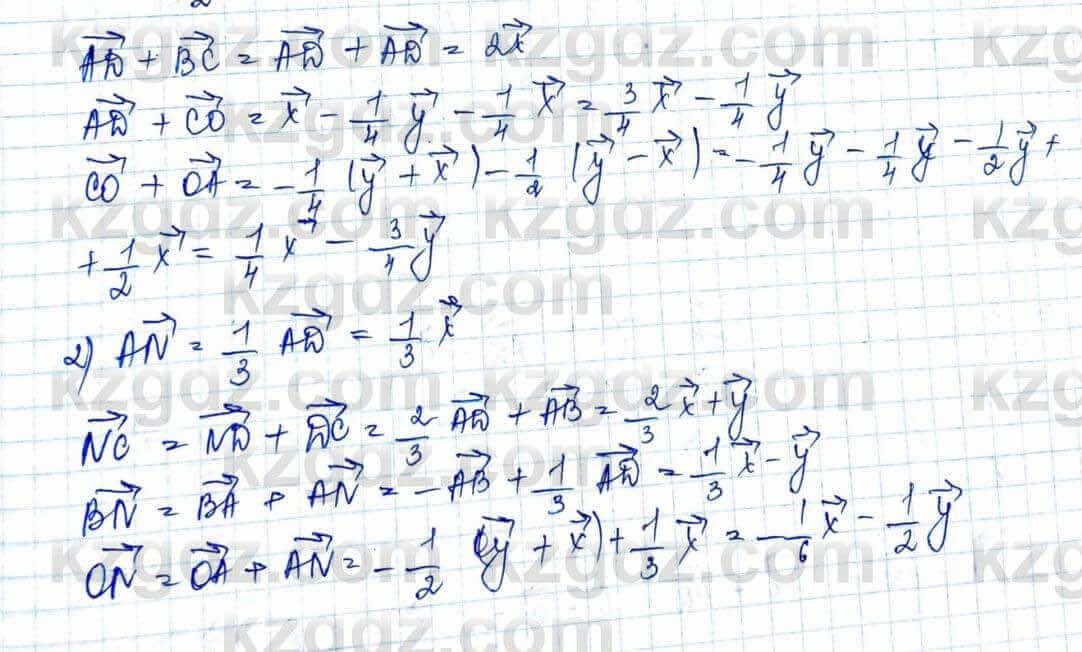 AD⃗ + BC⃗ = AD⃗ + AD⃗ = 2x⃗
AD⃗ + CO⃗ = x⃗ - 1/4 y⃗ - 1/4 x⃗ = 3/4 x⃗ - 1/4 y⃗
CO⃗ + OA⃗ = - 1/4 (y⃗ + x⃗) - 1/2 (y⃗ - x⃗) = - 1/4 y⃗ - 1/4 y⃗ - 1/2 y⃗ +
+ 1/2 x⃗ = 1/4 x⃗ - 3/4 y⃗
2) AN⃗ = 1/3 AD⃗ = 1/3 x⃗
NC⃗ = ND⃗ + DC⃗ = 2/3 AD⃗ + AB⃗ = 2/3 x⃗ + y⃗
BN⃗ = BA⃗ + AN⃗ = -AB⃗ + 1/3 AD⃗ = 1/3 x⃗ - y⃗
ON⃗ = OA⃗ + AN⃗ = - 1/2 (y⃗ + x⃗) + 1/3 x⃗ = - 1/6 x⃗ - 1/2 y⃗
kzgdz.com